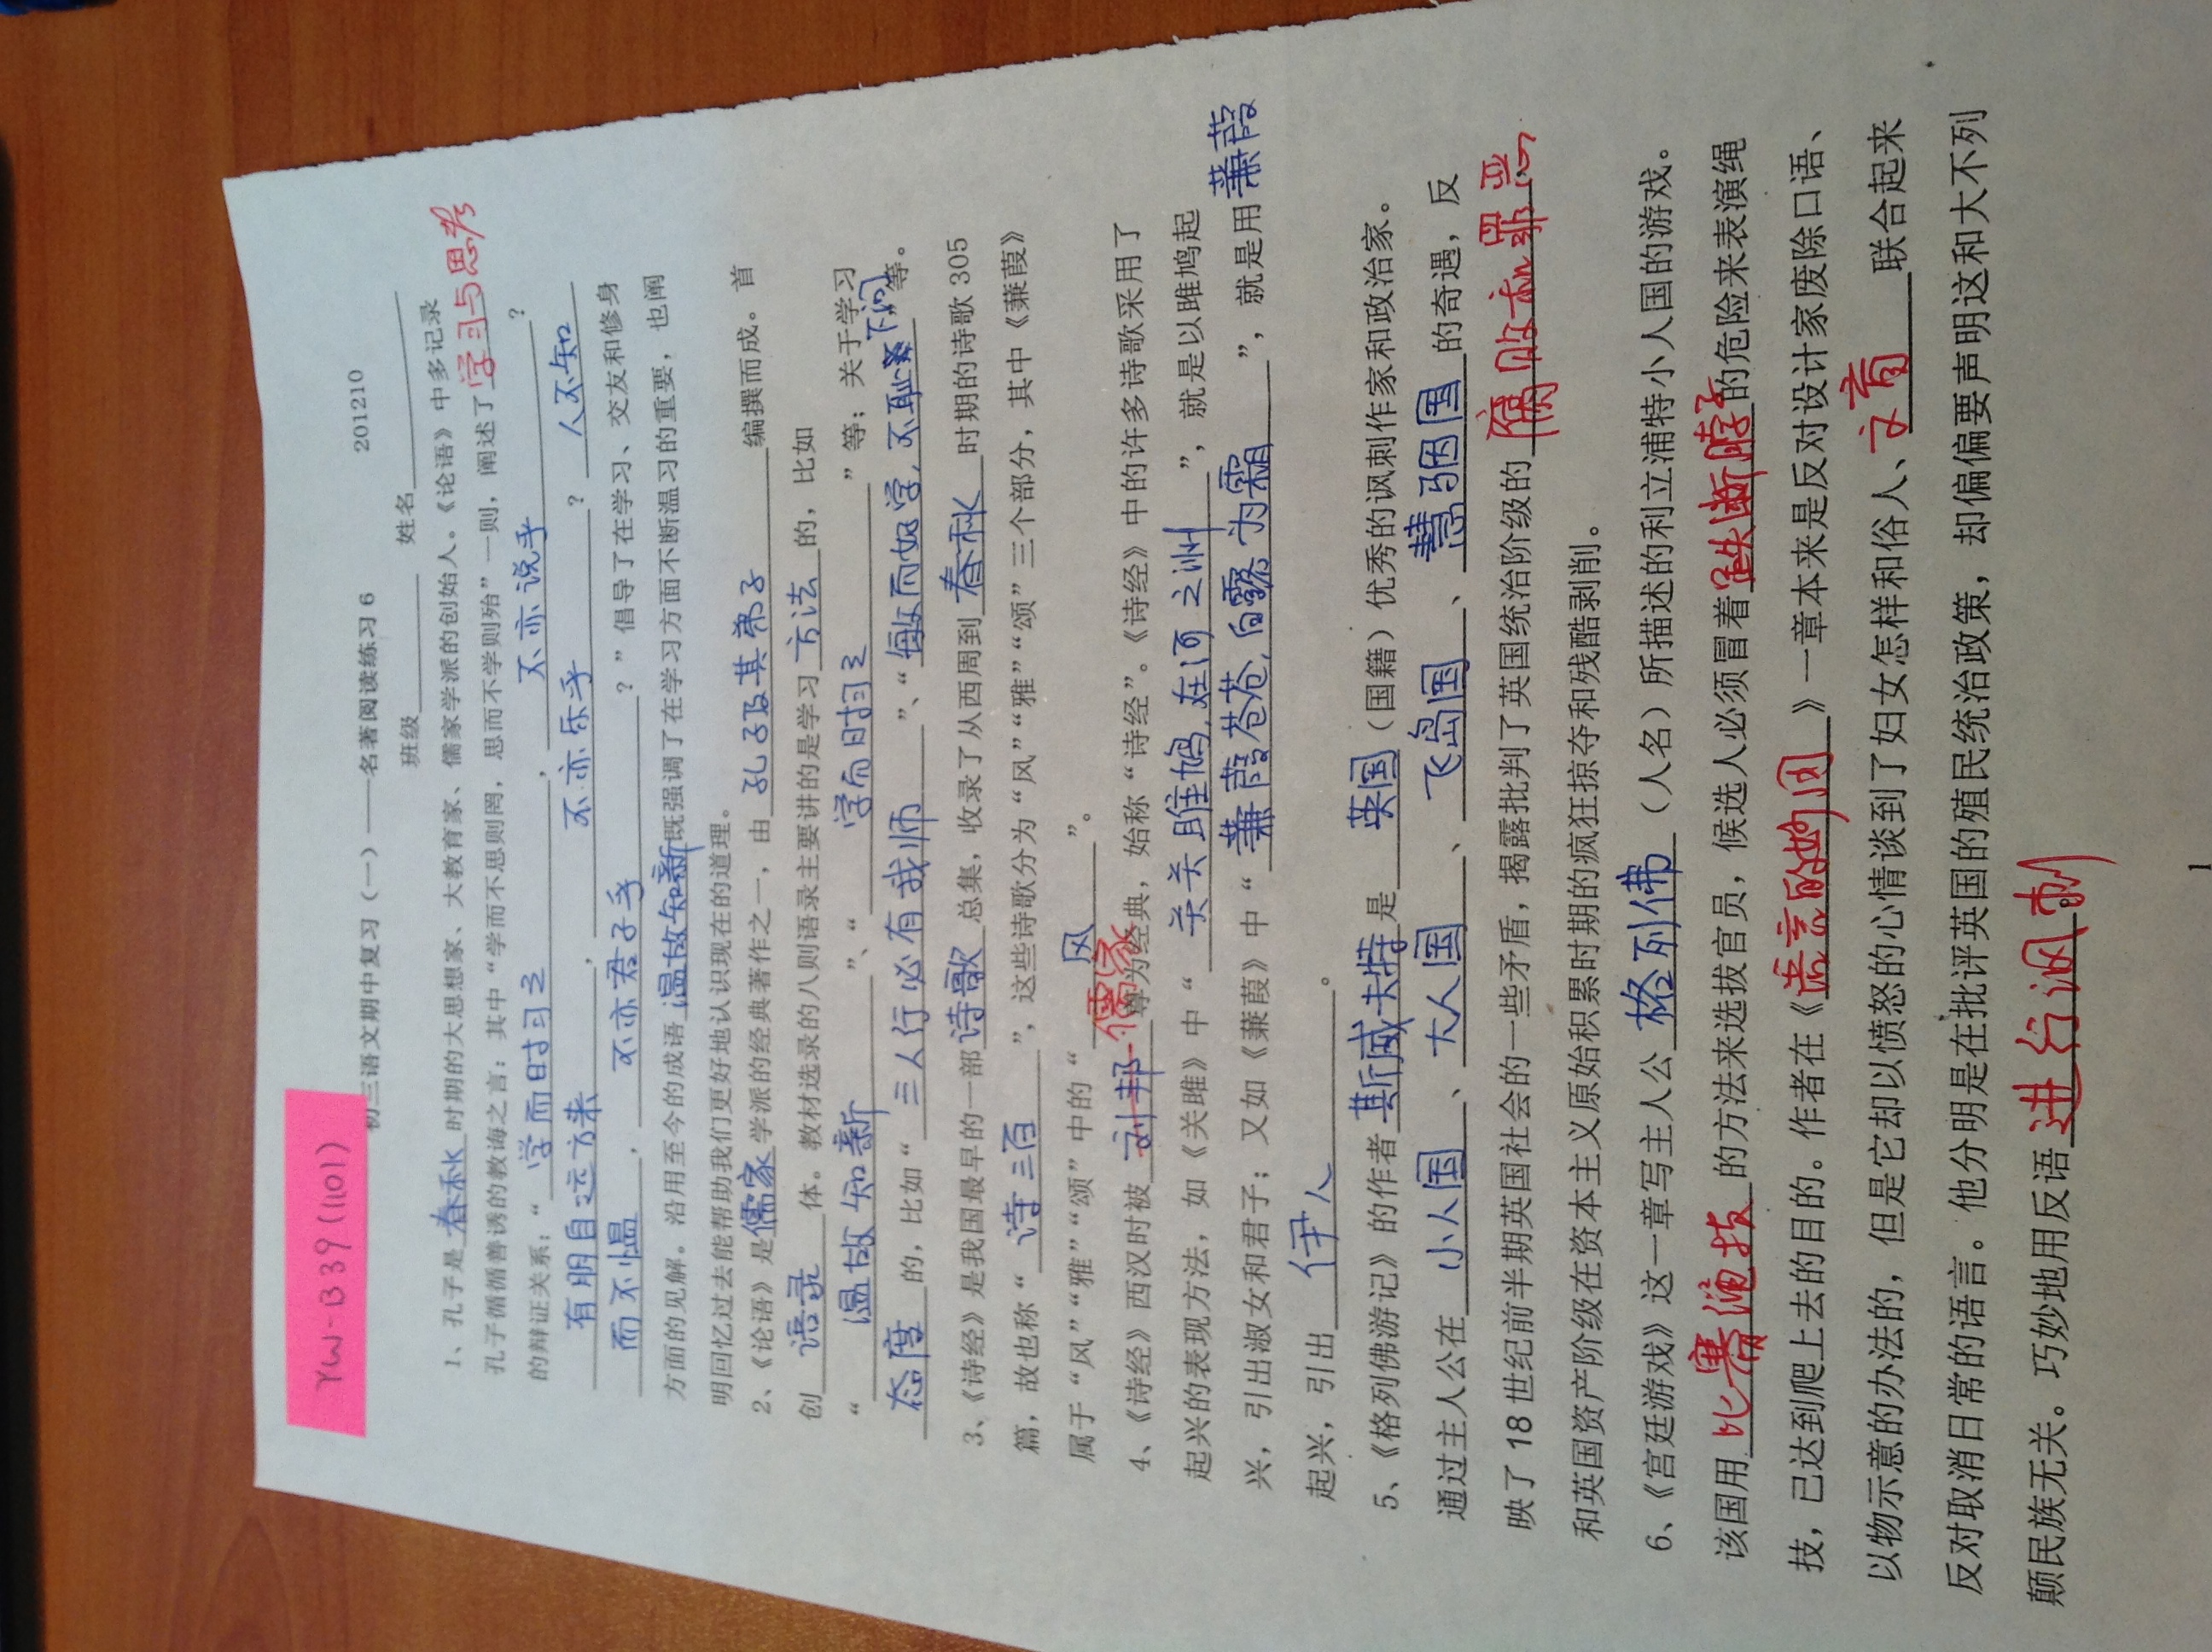 YW-B39(1101)
初三语文期中复习（一）——名著阅读练习6 201210
班级 姓名
1、孔子是春秋时期的大思想家、大教育家、儒家学派的创始人。《论语》中多记录
孔子循循善诱的教诲之言：其中“学而不思则罔，思而不学则殆”一则，阐述了学习与思考
的辩证关系；“学而时习之，不亦说乎？
有朋自远方来，不亦乐乎？人不知
而不愠，不亦君子乎？”倡导了在学习、交友和修身
方面的见解。沿用至今的成语温故知新既强调了在学习方面不断温习的重要，也阐
明回忆过去能帮助我们更好地认识现在的道理。
2、《论语》是儒家学派的经典著作之一，由孔子及其弟子编撰而成。首
创语录体。教材选录的八则语录主要讲的是学习方法的，比如
“温故知新”、“学而时习之”等；关于学习
态度的，比如“三人行必有我师”、“敏而好学，不耻下问”等。
3、《诗经》是我国最早的一部诗歌总集，收录了从西周到春秋时期的诗歌305
篇，故也称“诗三百”，这些诗歌分为“风”“雅”“颂”三个部分，其中《蒹葭》
属于“风”“雅”“颂”中的“风”。
4、《诗经》西汉时被刘邦儒家尊为经典，始称“诗经”。《诗经》中的许多诗歌采用了
起兴的表现方法，如《关雎》中“关关雎鸠，在河之洲”，就是以雎鸠起
兴，引出淑女和君子；又如《蒹葭》中“蒹葭苍苍，白露为霜”，就是用蒹葭
起兴，引出伊人。
5、《格列佛游记》的作者斯威夫特是英国（国籍）优秀的讽刺作家和政治家。
通过主人公在小人国、大人国、飞岛国、慧骃国的奇遇，反
映了18世纪前半期英国社会的一些矛盾，揭露批判了英国统治阶级的腐败和罪恶
和英国资产阶级在资本主义原始积累时期的疯狂掠夺和残酷剥削。
6、《宫廷游戏》这一章写主人公格列佛（人名）所描述的利立浦特小人国的游戏。
该国用比赛绳技的方法来选拔官员，候选人必须冒着跌断脖子的危险来表演绳
技，已达到爬上去的目的。作者在《语言的妙用》一章本来是反对设计家废除口语、
以物示意的办法的，但是它却以愤怒的心情谈到了妇女怎样和俗人、文盲联合起来
反对取消日常的语言。他分明是在批评英国的殖民统治政策，却偏偏要声明这和大不列
颠民族无关。巧妙地用反语进行讽刺。
1